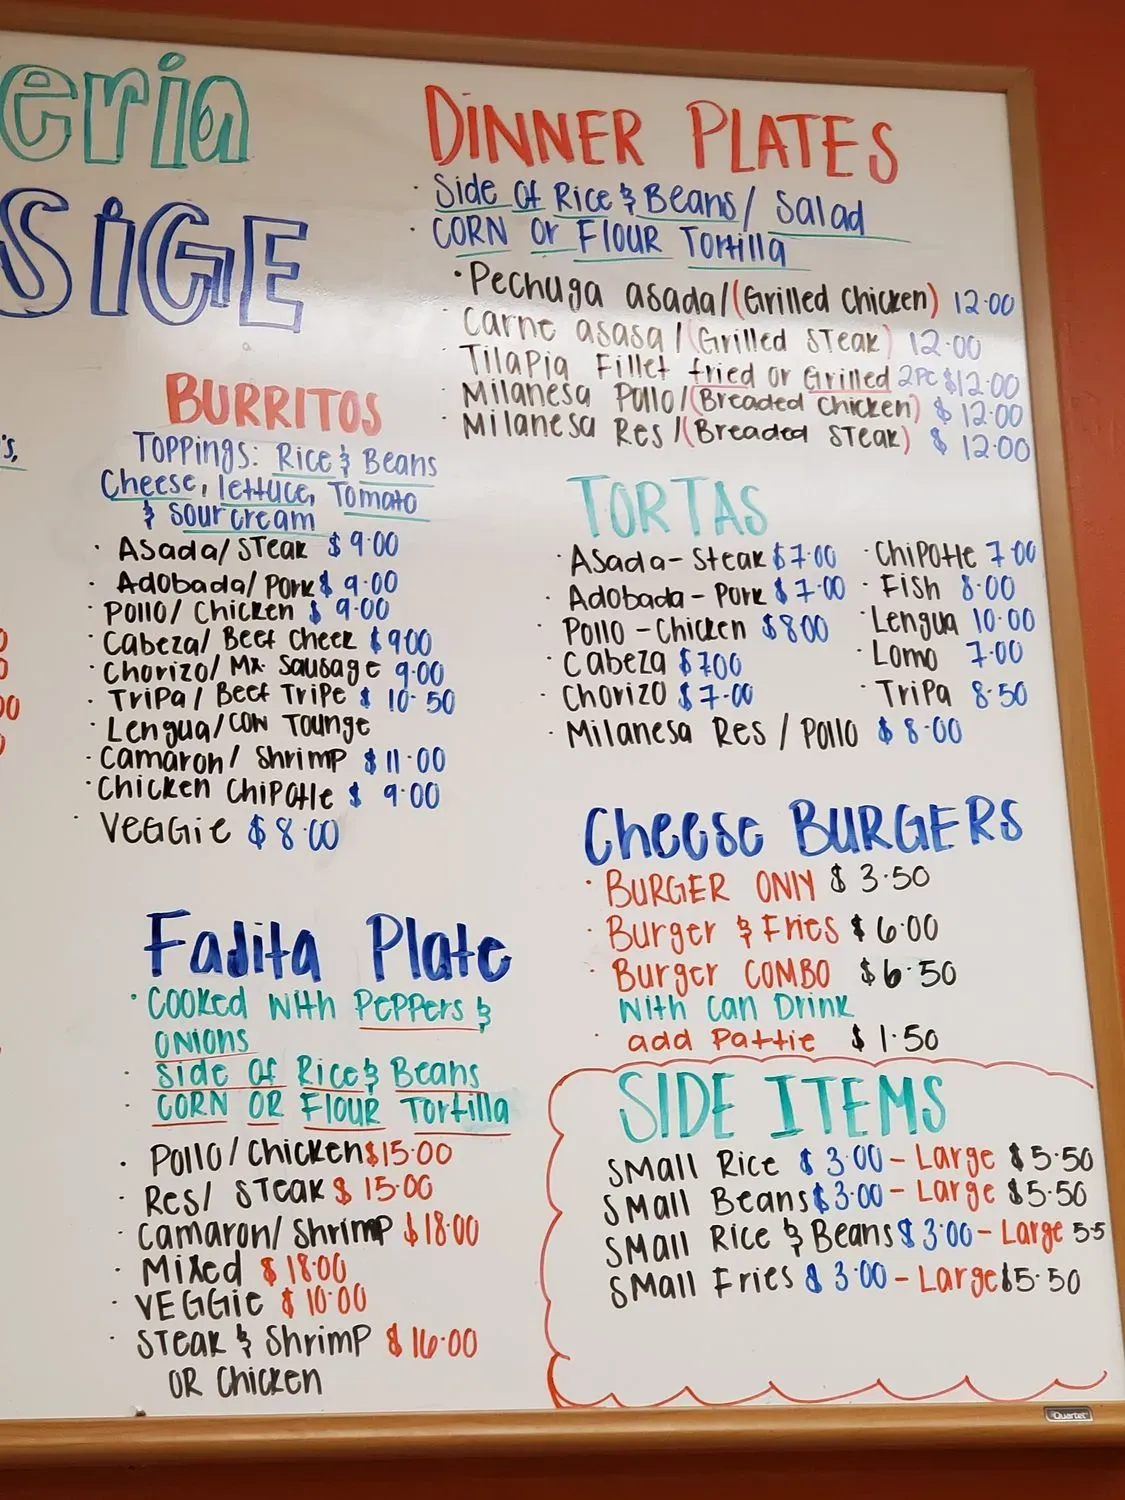 eria
SIGE
DINNER PLATES
· Side of Rice & Beans/ Salad
· CORN or FLOUR Tortilla
· Pechuga asada/(Grilled Chicken) 12.00
· Carne asasa/(Grilled STeak) 12.00
· TilaPia Fillet fried or Grilled 2PC $12.00
· Milanesa Pollo/(Breaded Chicken) $ 12.00
· Milanesa Res/(Breaded STeak) $ 12.00
BURRITOS
TOPPINGS: Rice & Beans
Cheese, lettuce, Tomato
& sour cream
· Asada/STeak $ 9.00
· Adobada/Pork $ 9.00
· Pollo/Chicken $ 9.00
· Cabeza/Beef Cheek $ 900
· Chorizo/Mx. Sausage 9.00
· TriPa/Beef TriPe $ 10.50
· Lengua/COW Tounge
· Camaron/Shrimp $ 11.00
· Chicken ChiPotle $ 9.00
· VEGGie $ 8.00
TORTAS
· Asada-Steak $7.00
· Adobada-Pork $ 7.00
· Pollo-Chicken $800
· Cabeza $700
· Chorizo $7.00
· Milanesa Res / Pollo $ 8.00
· ChiPotle 7.00
· Fish 8.00
· Lengua 10.00
· Lomo 7.00
· TriPa 8.50
Cheese BURGERS
· BURGER ONlY $ 3.50
· Burger & Fries $ 6.00
· Burger COMBO $6.50
With Can Drink
· add Pattie $ 1.50
Fajita Plate
· Cooked with PePPers &
ONIONS
· Side Of Rice & Beans
· CORN OR FlOUR Tortilla
· Pollo/Chicken $15.00
· Res/ STeak $ 15.00
· Camaron/Shrimp $18.00
· Mixed $ 18.00
· VEGGie $ 10.00
· STeak & Shrimp $ 16.00
OR Chicken
SIDE ITEMS
SMall Rice $ 3.00 - Large $5.50
SMall Beans $3.00 - Large $5.50
SMall Rice & Beans $ 3.00 - Large 5.5
SMall Fries $ 3.00 - Large $5.50
Quartet